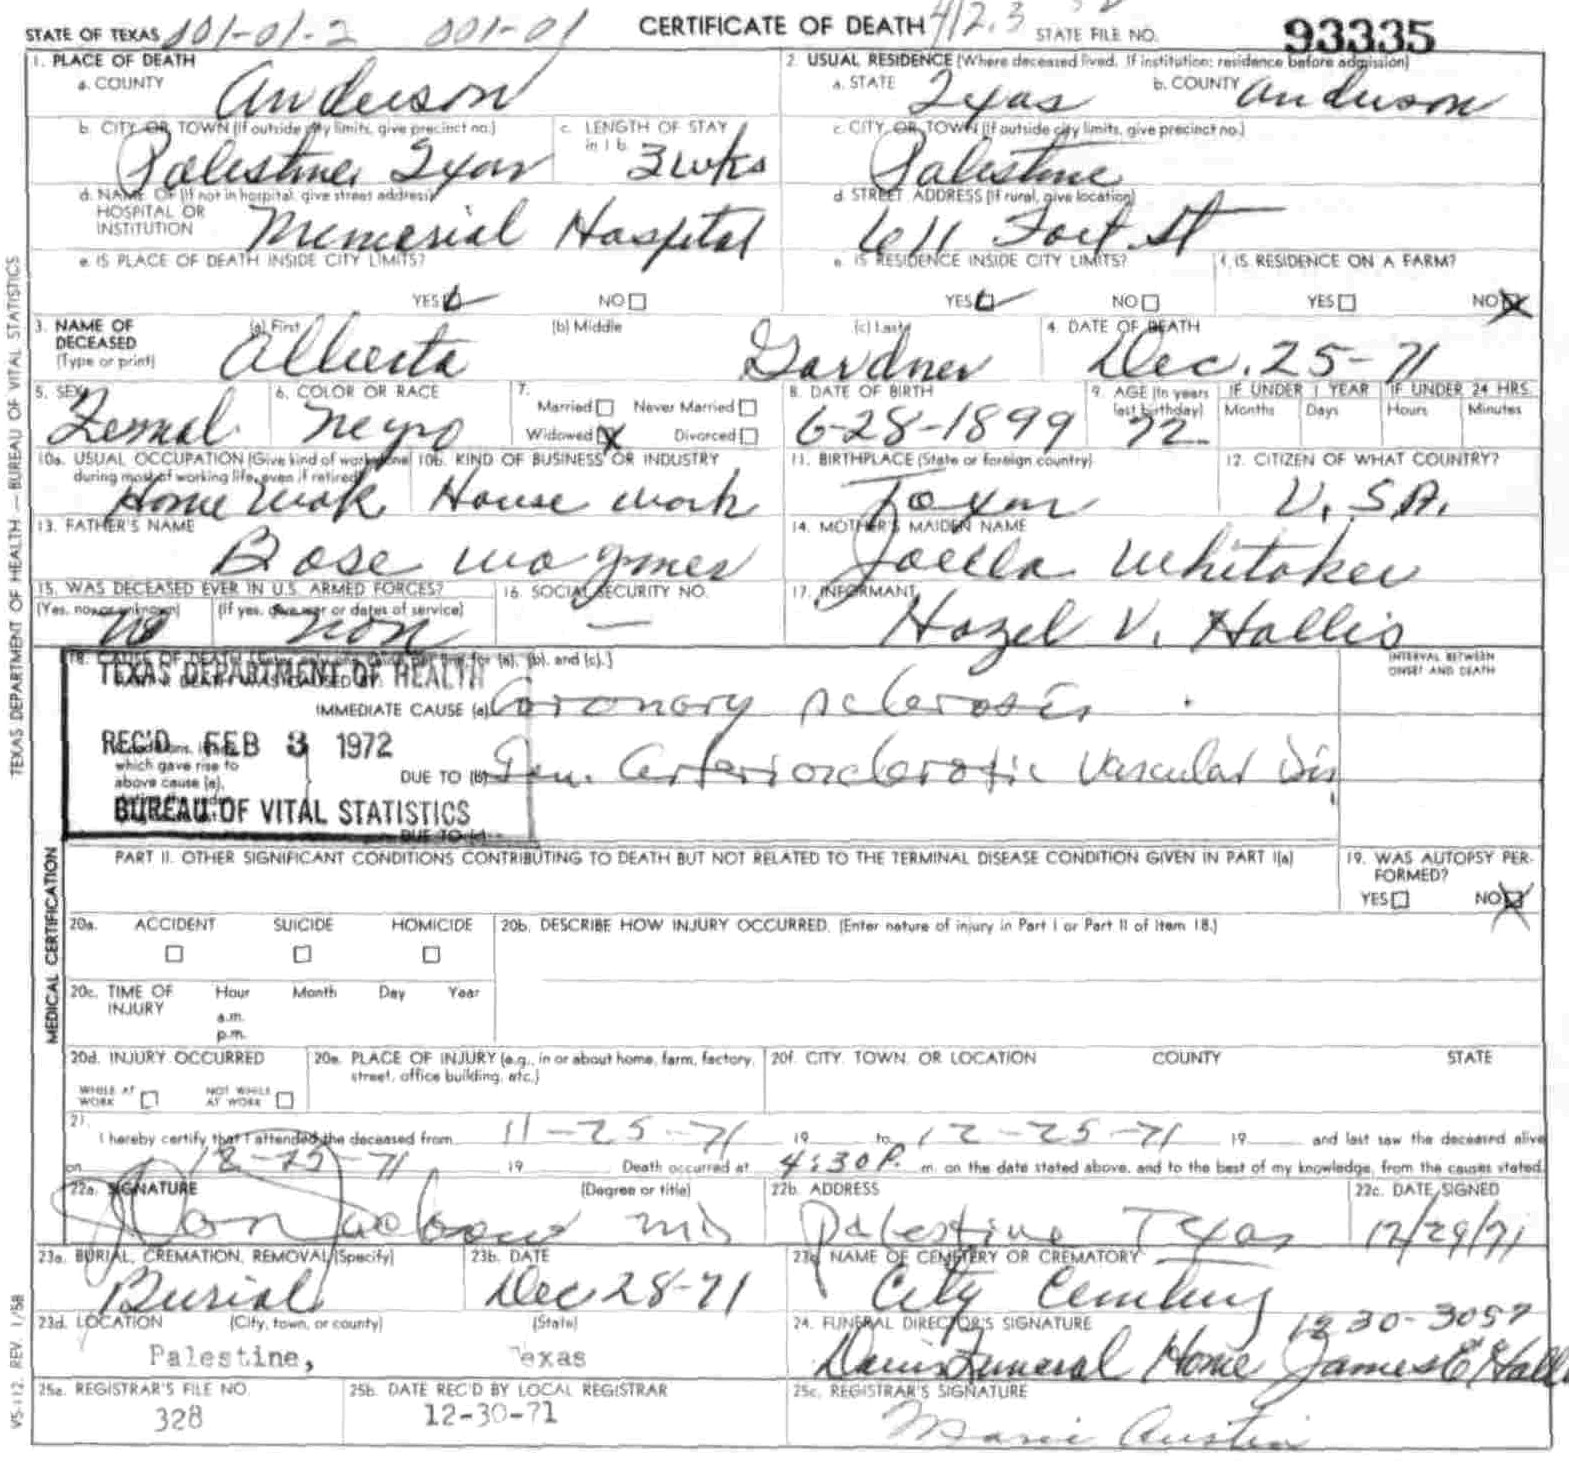 STATE OF TEXAS 001-01-2 001-01 CERTIFICATE OF DEATH 412.3 STATE FILE NO. 93335
1. PLACE OF DEATH 2. USUAL RESIDENCE (Where deceased lived. If institution: residence before admission)
a. COUNTY Anderson a. STATE Texas b. COUNTY Anderson
b. CITY OR TOWN (If outside city limits, give precinct no.) c. LENGTH OF STAY in 1 b. c. CITY OR TOWN (If outside city limits, give precinct no.)
Palestine Texas 3 wks Palestine
d. NAME OF (If not in hospital, give street address) HOSPITAL OR INSTITUTION d. STREET ADDRESS (If rural, give location)
Memorial Hospital 611 Fort St
e. IS PLACE OF DEATH INSIDE CITY LIMITS? e. IS RESIDENCE INSIDE CITY LIMITS? f. IS RESIDENCE ON A FARM?
YES NO YES NO YES NO
3. NAME OF DECEASED (Type or print) (a) First (b) Middle (c) Last 4. DATE OF DEATH
Alberta Gardner Dec. 25-71
5. SEX 6. COLOR OR RACE 7. Married Never Married 8. DATE OF BIRTH 9. AGE (In years last birthday) IF UNDER 1 YEAR IF UNDER 24 HRS.
Months Days Hours Minutes
Femal Negro Widowed Divorced 6-28-1899 72
10a. USUAL OCCUPATION (Give kind of work done during most of working life, even if retired) 10b. KIND OF BUSINESS OR INDUSTRY 11. BIRTHPLACE (State or foreign country) 12. CITIZEN OF WHAT COUNTRY?
Home Wok House work Texas U.S.A.
13. FATHER'S NAME 14. MOTHER'S MAIDEN NAME
Bose Joella Whitaker
15. WAS DECEASED EVER IN U.S. ARMED FORCES? 16. SOCIAL SECURITY NO. 17. INFORMANT
(Yes, no, or unknown) (If yes, give war or dates of service)
no non — Hazel V. Hallis
18. CAUSE OF DEATH [Enter only one cause per line for (a), (b), and (c).] INTERVAL BETWEEN ONSET AND DEATH
TEXAS DEPARTMENT OF HEALTH
PART I. DEATH WAS CAUSED BY:
IMMEDIATE CAUSE (a) Coronary sclerosis
REC'D FEB 3 1972
Conditions, if any, which gave rise to above cause (a),
DUE TO (b) Gen. Arteriosclerotic Vascular Dis
BUREAU OF VITAL STATISTICS
DUE TO (c)
PART II. OTHER SIGNIFICANT CONDITIONS CONTRIBUTING TO DEATH BUT NOT RELATED TO THE TERMINAL DISEASE CONDITION GIVEN IN PART I(a) 19. WAS AUTOPSY PERFORMED?
YES NO
20a. ACCIDENT SUICIDE HOMICIDE 20b. DESCRIBE HOW INJURY OCCURRED. (Enter nature of injury in Part I or Part II of item 18.)
20c. TIME OF INJURY Hour Month Day Year
a.m.
p.m.
20d. INJURY OCCURRED 20e. PLACE OF INJURY (e.g., in or about home, farm, factory, street, office building, etc.) 20f. CITY, TOWN, OR LOCATION COUNTY STATE
WHILE AT WORK NOT WHILE AT WORK
21. I hereby certify that I attended the deceased from 11-25-71 19 to 12-25-71 19 and last saw the deceased alive
on 12-25-71 19 Death occurred at 4:30 P. m. on the date stated above, and to the best of my knowledge, from the causes stated.
22a. SIGNATURE (Degree or title) 22b. ADDRESS 22c. DATE SIGNED
MD Palestine Texas 12/29/71
23a. BURIAL, CREMATION, REMOVAL (Specify) 23b. DATE 23c. NAME OF CEMETERY OR CREMATORY
Burial Dec 28-71 City Cemtery
23d. LOCATION (City, town, or county) (State) 24. FUNERAL DIRECTOR'S SIGNATURE
Palestine, Texas Funeral Home James E. Hall
25a. REGISTRAR'S FILE NO. 25b. DATE REC'D BY LOCAL REGISTRAR 25c. REGISTRAR'S SIGNATURE
328 12-30-71 Marie Austin
TEXAS DEPARTMENT OF HEALTH — BUREAU OF VITAL STATISTICS
MEDICAL CERTIFICATION
VS-112. REV. 1/58